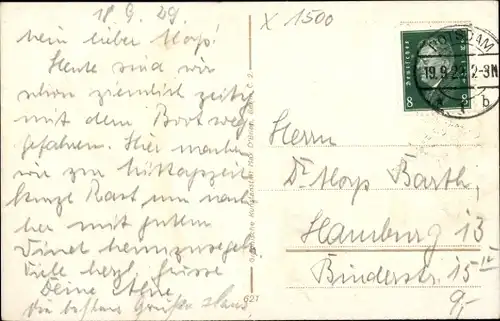 18.9.29
Mein lieber
Heute sind wir
schon ziemlich zeitig
mit dem Boot weg
gefahren. Hier machen
wir zur Mittagszeit
kurze Rast um nach
her mit gutem
Wind heimzusegeln
Viele herzl. Grüsse
Deine
Die besten Grüße Hans
X 1500
POTSDAM
19.9.29. 2-3N
b
Deutsches Reich
8 8
Herrn
Dr. Barth,
Hamburg 13
Binderstr. 15 IV
9,-
621